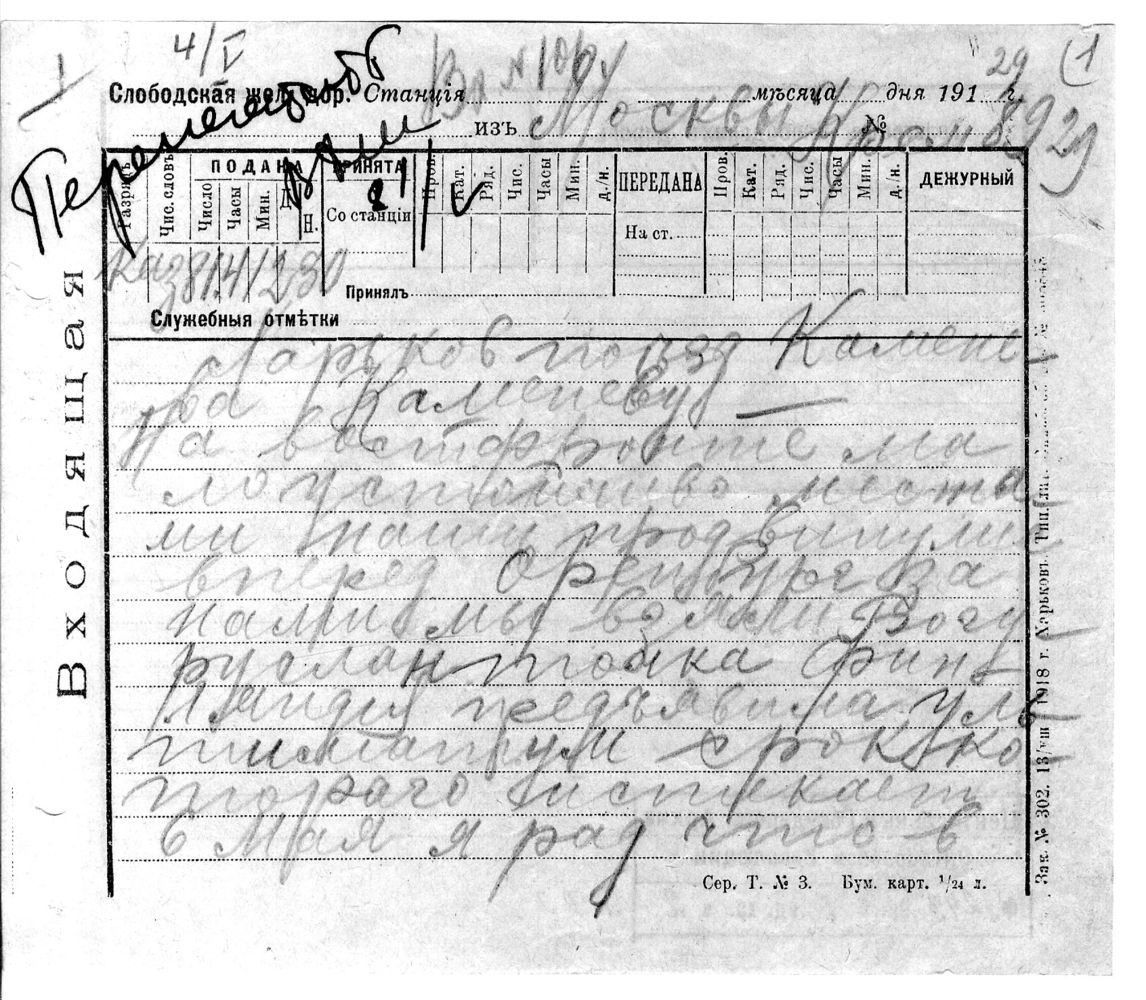 4/V
29 (1
Слободская жел. дор. Станція мѣсяца дня 191 г.
изъ Москвы №
Входящая
Разрядъ Чис. словъ ПОДАНА Число Часы Мин. Д. Н. ПРИНЯТА Со станціи Пров. Кат. Ряд. Чис. Часы Мин. д./н. ПЕРЕДАНА На ст. Пров. Кат. Ряд. Чис. Часы Мин. д./н. ДЕЖУРНЫЙ
Принялъ
Служебныя отмѣтки
Харьков поезд Камене
ва Каменеву —
На востфронте ма
ло устойчиво места
ми наши продвинулись
вперед Оренбург за
нами мы взяли Бугу
руслан точка Фин
ляндия предъявила уль
тиматум срок ко
торого истекает
6 Мая я рад что в
Сер. Т. № 3. Бум. карт. 1/24 л.
Зак. № 302. 13/VIII 1918 г. Харьковъ. Тип.